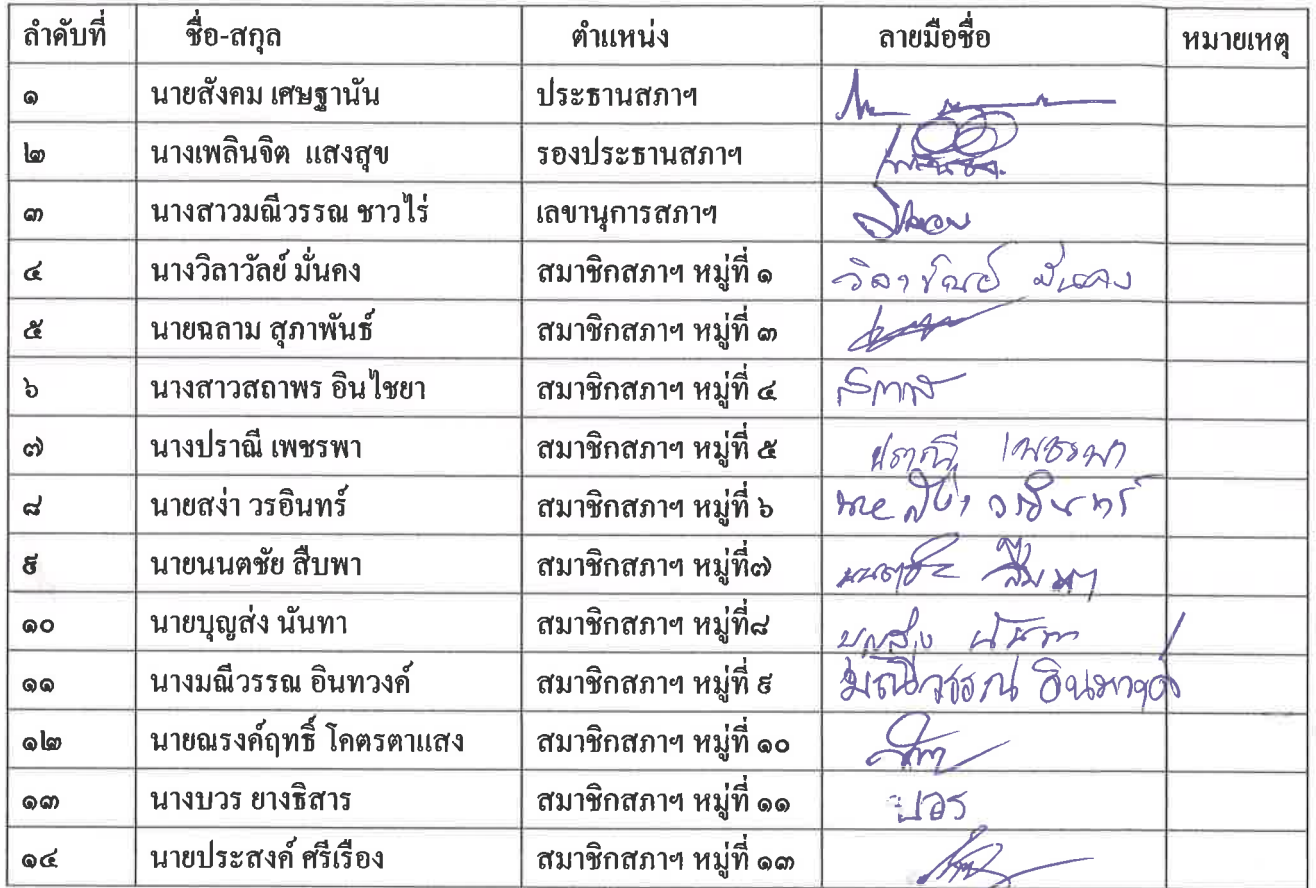 ลำดับที่ ชื่อ-สกุล ตำแหน่ง ลายมือชื่อ หมายเหตุ
๑ นายสังคม เศษฐานัน ประธานสภาฯ
๒ นางเพลินจิต แสงสุข รองประธานสภาฯ เพลินจิต
๓ นางสาวมณีวรรณ ชาวไร่ เลขานุการสภาฯ
๔ นางวิลาวัลย์ มั่นคง สมาชิกสภาฯ หมู่ที่ ๑ วิลาวัลย์ มั่นคง
๕ นายฉลาม สุภาพันธ์ สมาชิกสภาฯ หมู่ที่ ๓
๖ นางสาวสถาพร อินไชยา สมาชิกสภาฯ หมู่ที่ ๔
๗ นางปราณี เพชรพา สมาชิกสภาฯ หมู่ที่ ๕ ปราณี เพชรพา
๘ นายสง่า วรอินทร์ สมาชิกสภาฯ หมู่ที่ ๖ นายสง่า วรอินทร์
๙ นายนนตชัย สืบพา สมาชิกสภาฯ หมู่ที่๗ นนตชัย สืบพา
๑๐ นายบุญส่ง นันทา สมาชิกสภาฯ หมู่ที่๘ บุญส่ง นันทา
๑๑ นางมณีวรรณ อินทวงค์ สมาชิกสภาฯ หมู่ที่ ๙ มณีวรรณ อินทวงค์
๑๒ นายณรงค์ฤทธิ์ โคตรตาแสง สมาชิกสภาฯ หมู่ที่ ๑๐
๑๓ นางบวร ยางธิสาร สมาชิกสภาฯ หมู่ที่ ๑๑ บวร
๑๔ นายประสงค์ ศรีเรือง สมาชิกสภาฯ หมู่ที่ ๑๓